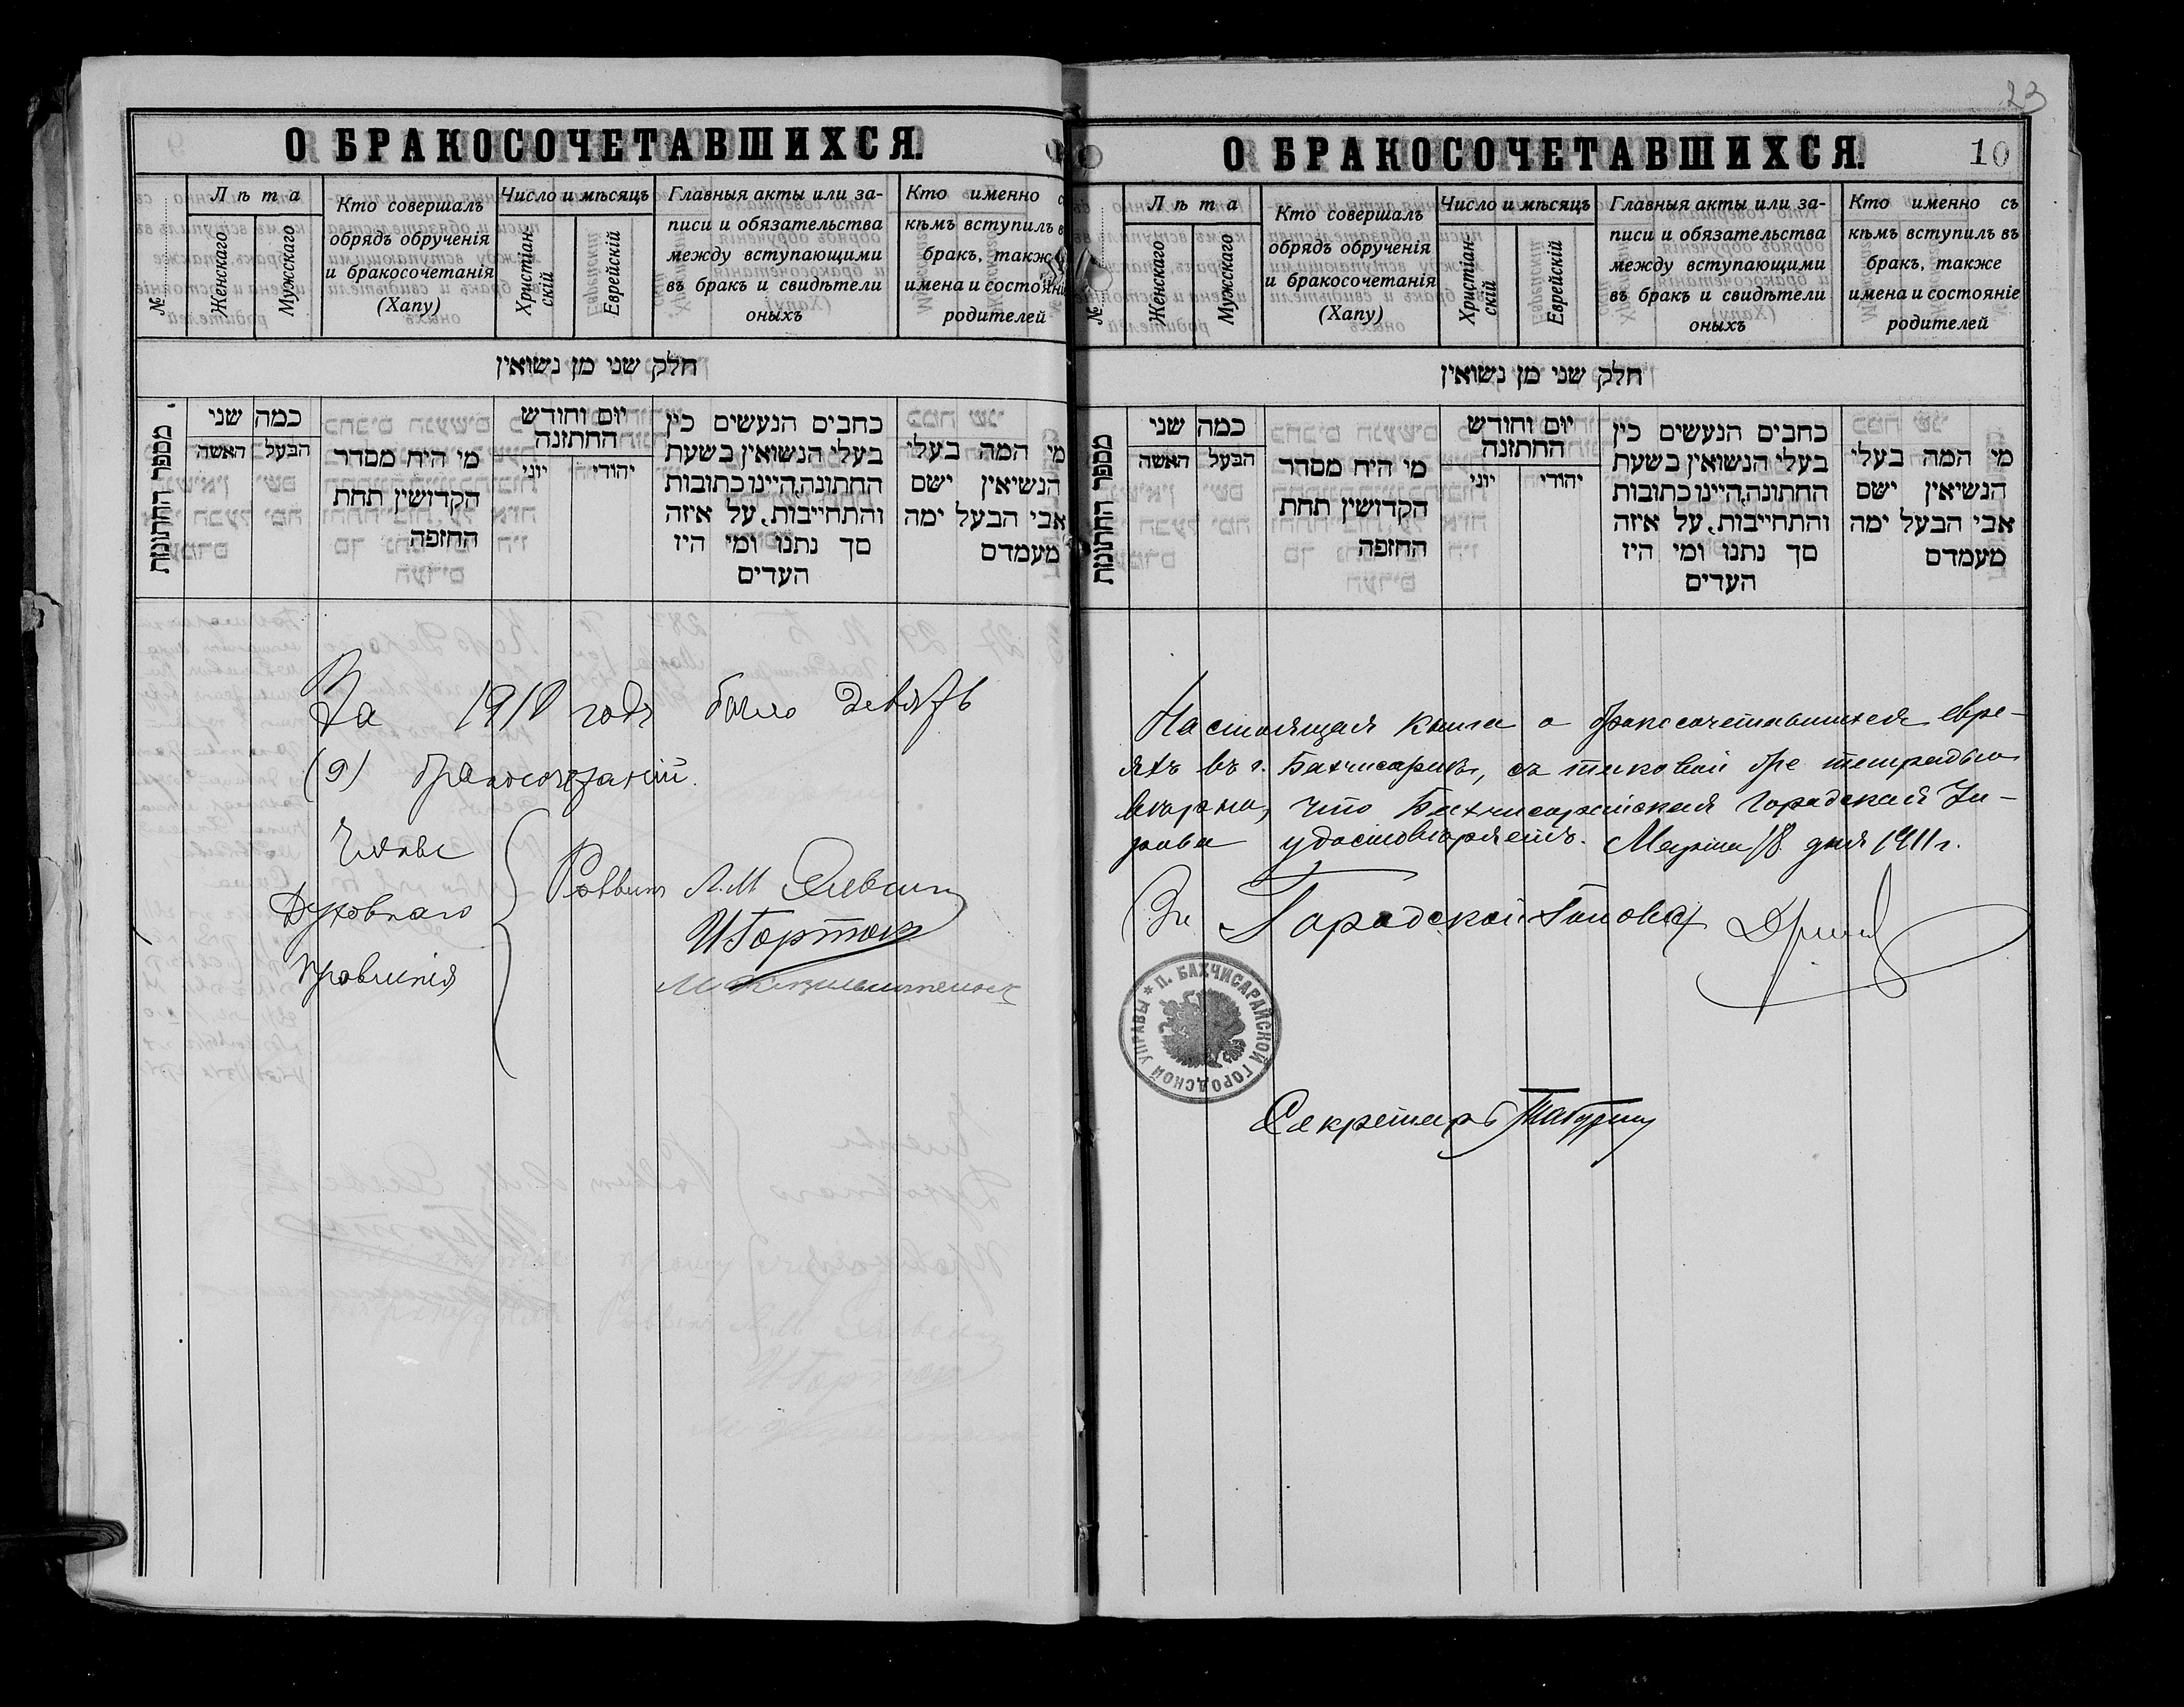 О БРАКОСОЧЕТАВШИХСЯ.
№
Лѣта
Женскаго
Мужсскаго
Кто совершалъ
обрядъ обрученія
и бракосочетанія
(Хапу)
Число и мѣсяцъ
Христіан-
скій
Еврейскій
Главныя акты или за-
писи и обязательства
между вступающими
въ бракъ и свидѣтели
оныхъ
Кто именно с
кѣмъ вступилъ в
бракъ, также
имена и состояні
родителей
חלק שני מן נשואין
מספר החתונות
כמה שני
הבעל האשה
מי היח מסדר
הקדושין תחת
החופה
יום וחודש
החתונה
יהודי יוני
כחבים הנעשים כין
בעלי הנשואין בשעת
החתונה, היינו כתובות
והתחייבות, על איזה
סך נתנו ומי היו
העדים
מי המה בעלי
הנשיאין ישם
אבי הבעל ימה
מעמדם
За 1910 годъ было девять
(9) бракосочетаній.
Члены
Духовнаго
Правленія
Раввинъ Л. М.
23
О БРАКОСОЧЕТАВШИХСЯ.
10
№
Лѣта
Женскаго
Мужскаго
Кто совершалъ
обрядъ обрученія
и бракосочетанія
(Хапу)
Число и мѣсяцъ
Христіан-
скій
Еврейскій
Главныя акты или за-
писи и обязательства
между вступающими
въ бракъ и свидѣтели
оныхъ
Кто именно съ
кѣмъ вступилъ въ
бракъ, также
имена и состояніе
родителей
חלק שני מן נשואין
מספר החתונות
כמה שני
הבעל האשה
מי היח מסדר
הקדושין תחת
החופה
יום וחודש
החתונה
יהודי יוני
כחבים הנעשים כין
בעלי הנשואין בשעת
החתונה, היינו כתובות
והתחייבות, על איזה
סך נתנו ומי היו
העדים
מי המה בעלי
הנשיאין ישם
אבי הבעל ימה
מעמדם
Настоящая книга о бракосочетавшихся евре-
яхъ въ г. Бахчисараѣ, съ таковой же тетрадью
вѣрна, что Бахчисарайская Городская Уп-
рава удостовѣряетъ. Марта 18 дня 1911 г.
За Городской Голова
П. БАХЧИСАРАЙСКОЙ ГОРОДСКОЙ УПРАВЫ
Секретарь